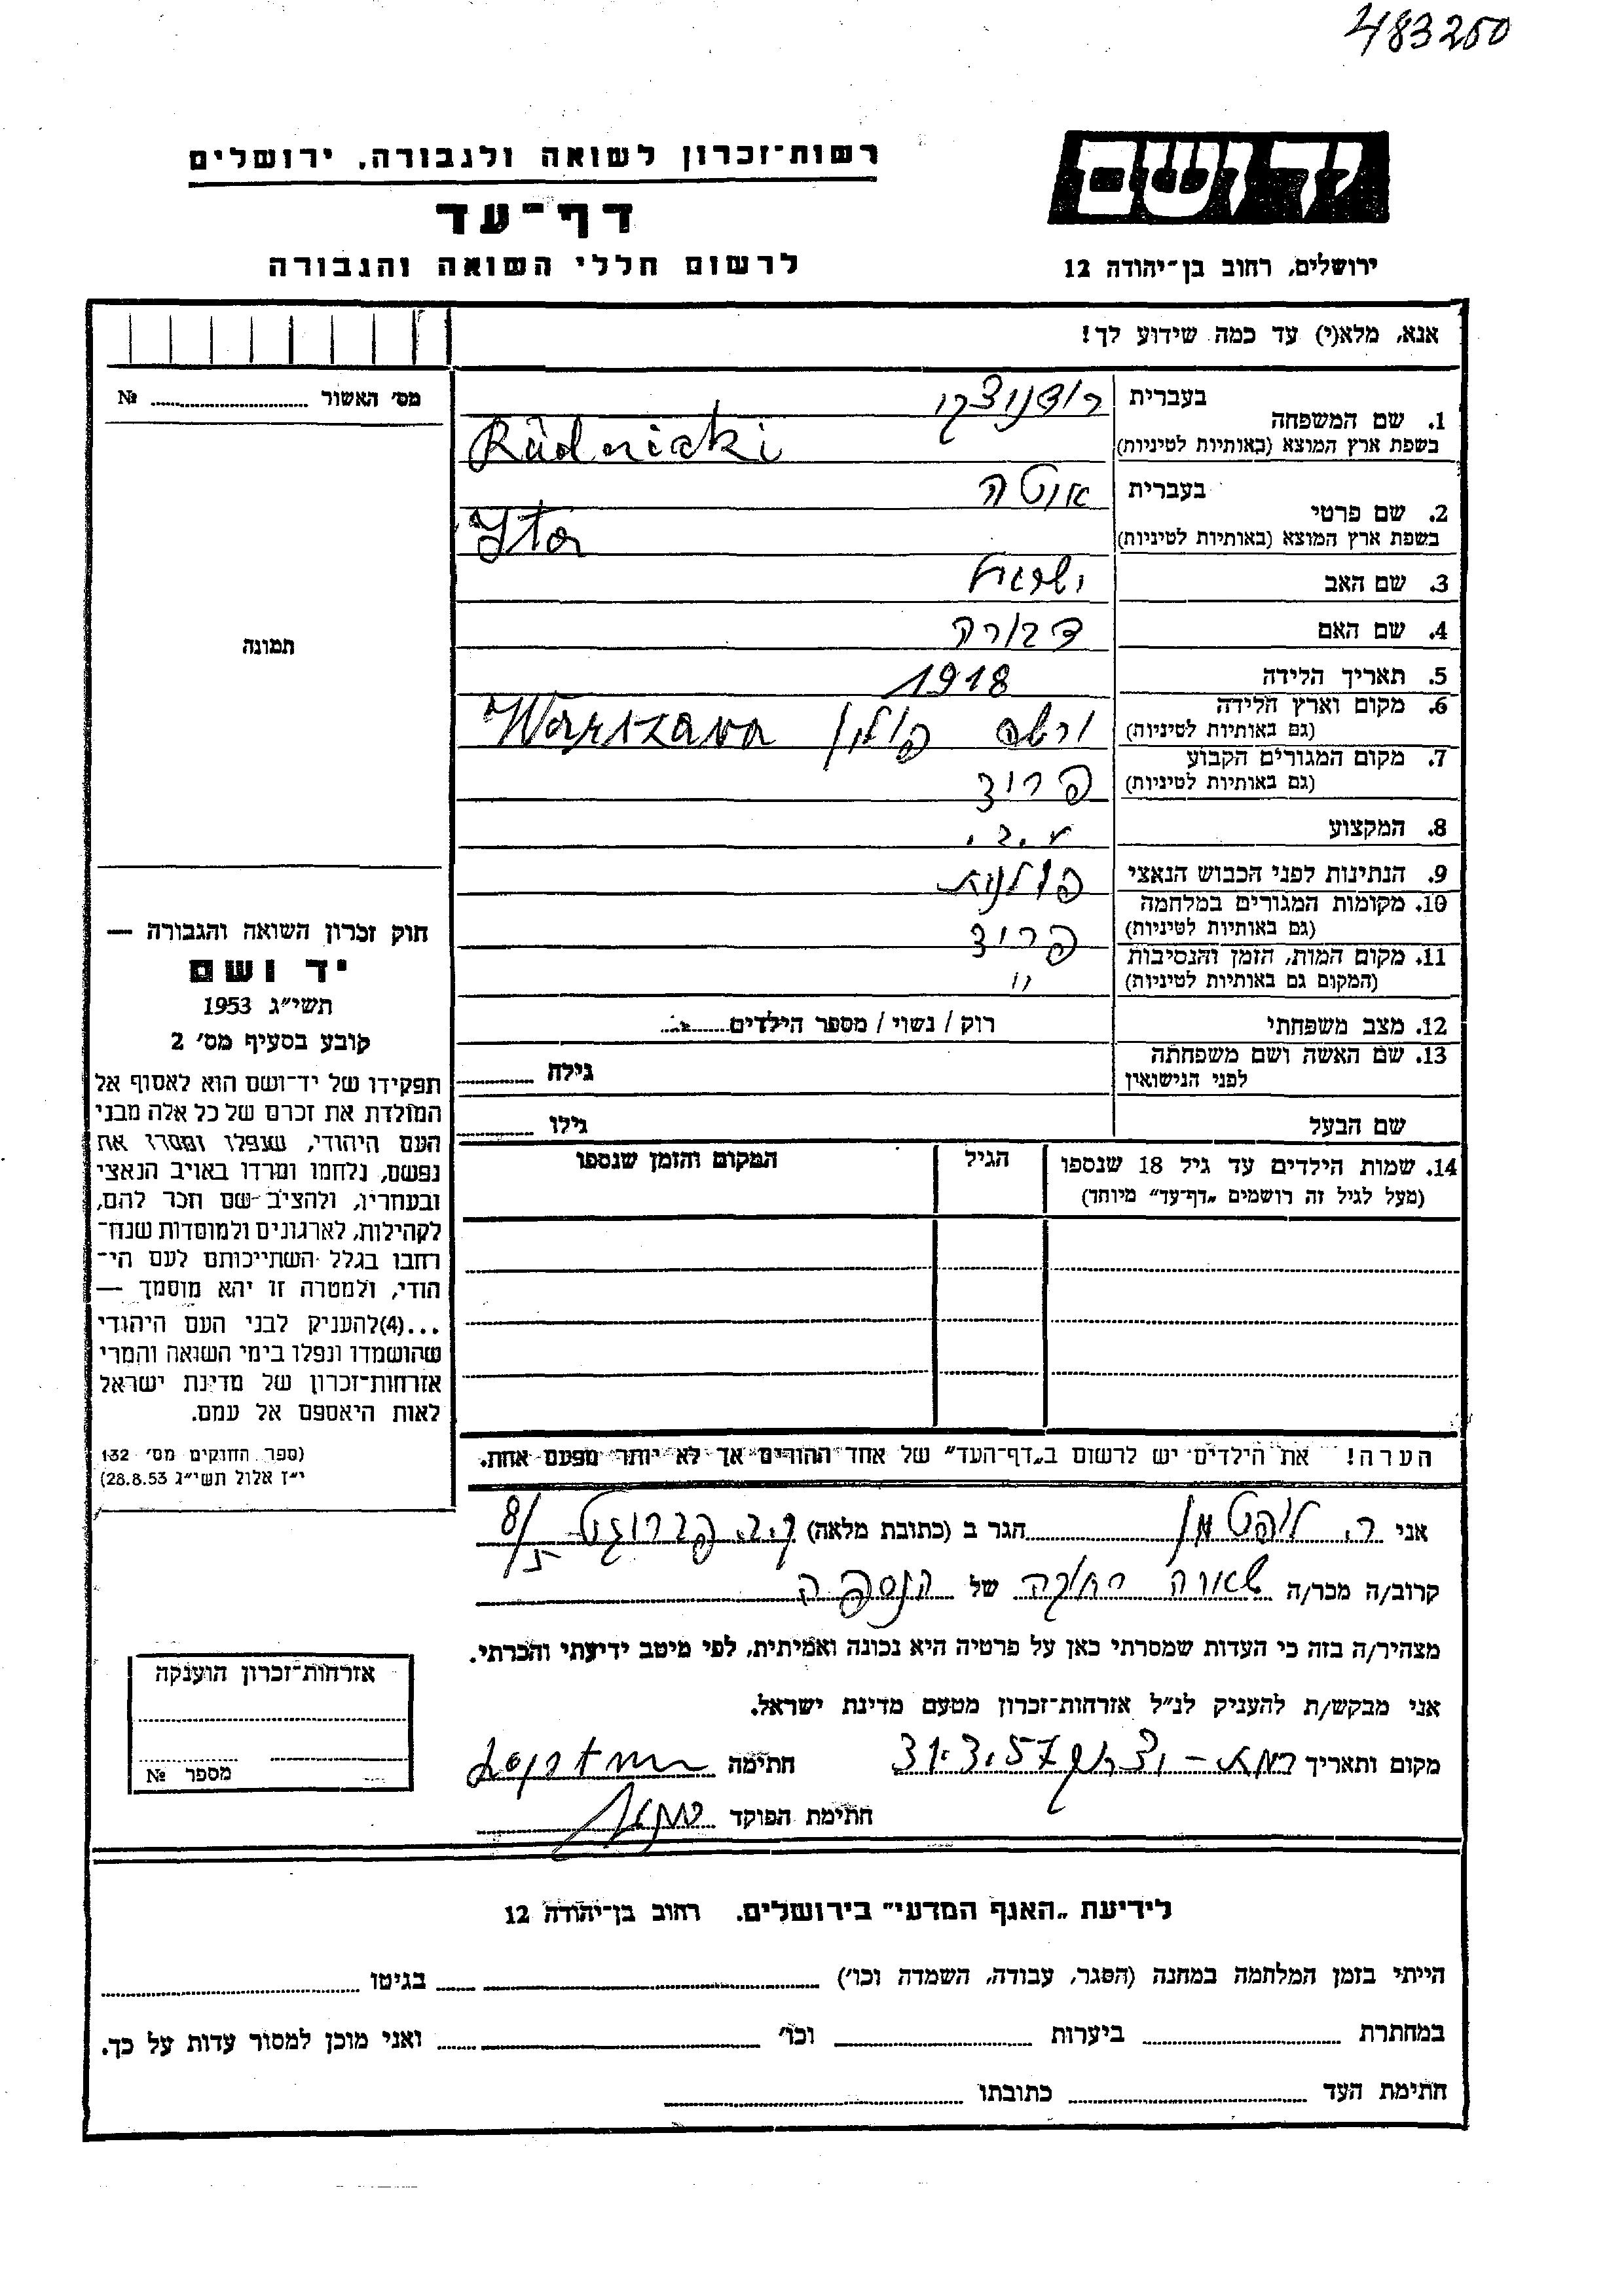 483250
רשות־זכרון לשואה ולגבורה, ירושלים
יד ושם
דף־עד
לרשום חללי השואה והגבורה
ירושלים, רחוב בן־יהודה 12
אנא, מלא(י) עד כמה שידוע לך!
מס׳ האשור № 
1. שם המשפחה בעברית רודניצקי
בשפת ארץ המוצא (באותיות לטיניות) Rudnicki
2. שם פרטי בעברית איטה
בשפת ארץ המוצא (באותיות לטיניות) Yta
3. שם האב ישראל
4. שם האם דבורה
תמונה
5. תאריך הלידה 1918
6. מקום וארץ הלידה ורשה פולין Warszawa
(גם באותיות לטיניות)
7. מקום המגורים הקבוע
(גם באותיות לטיניות) פריז
8. המקצוע
9. הנתינות לפני הכבוש הנאצי פולנית
10. מקומות המגורים במלחמה
(גם באותיות לטיניות) פריז
11. מקום המות, הזמן והנסיבות
(המקום גם באותיות לטיניות) "
12. מצב משפחתי רוק / נשוי / מספר הילדים
13. שם האשה ושם משפחתה
לפני הנישואין גילה
שם הבעל גילו
14. שמות הילדים עד גיל 18 שנספו הגיל המקום והזמן שנספו
(מעל לגיל זה רושמים „דף־עד" מיוחד)
חוק זכרון השואה והגבורה —
יד ושם
תשי״ג 1953
קובע בסעיף מס׳ 2
תפקידו של יד־ושם הוא לאסוף אל
המולדת את זכרם של כל אלה מבני
העם היהודי, שנפלו ומסרו את
נפשם, נלחמו ומרדו באויב הנאצי
ובעוזריו, ולהציב שם וזכר להם,
לקהילות, לארגונים ולמוסדות שנח־
רבו בגלל השתייכותם לעם הי־
הודי, ולמטרה זו יהא מוסמך —
...(4)להעניק לבני העם היהודי
שהושמדו ונפלו בימי השואה והמרי
אזרחות־זכרון של מדינת ישראל
לאות היאספם אל עמם.
(ספר החוקים מס׳ 132
י״ז אלול תשי״ג 28.8.53)
הערה! את הילדים יש לרשום ב„דף־העד" של אחד ההורים אך לא יותר מפעם אחת.
אני ר. ליהטמן הגר ב (כתובת מלאה) 8/
קרוב/ה מכר/ה שארה רחוקה של הנספה
מצהיר/ה בזה כי העדות שמסרתי כאן על פרטיה היא נכונה ואמיתית, לפי מיטב ידיעתי והכרתי.
אני מבקש/ת להעניק לנ״ל אזרחות־זכרון מטעם מדינת ישראל.
מקום ותאריך 31.3.57 חתימה
חתימת הפוקד
אזרחות־זכרון הוענקה
מספר №
לידיעת „האגף המדעי" בירושלים. רחוב בן־יהודה 12
הייתי בזמן המלחמה במחנה (הסגר, עבודה, השמדה וכו׳) בגיטו
במחתרת ביערות וכו׳ ואני מוכן למסור עדות על כך.
חתימת העד כתובתו